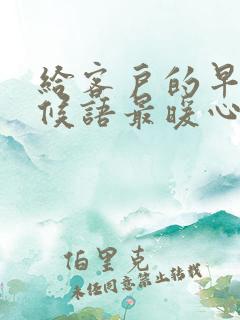 給客戶的早
候語最暖心
伯里克
未经同意禁止转载